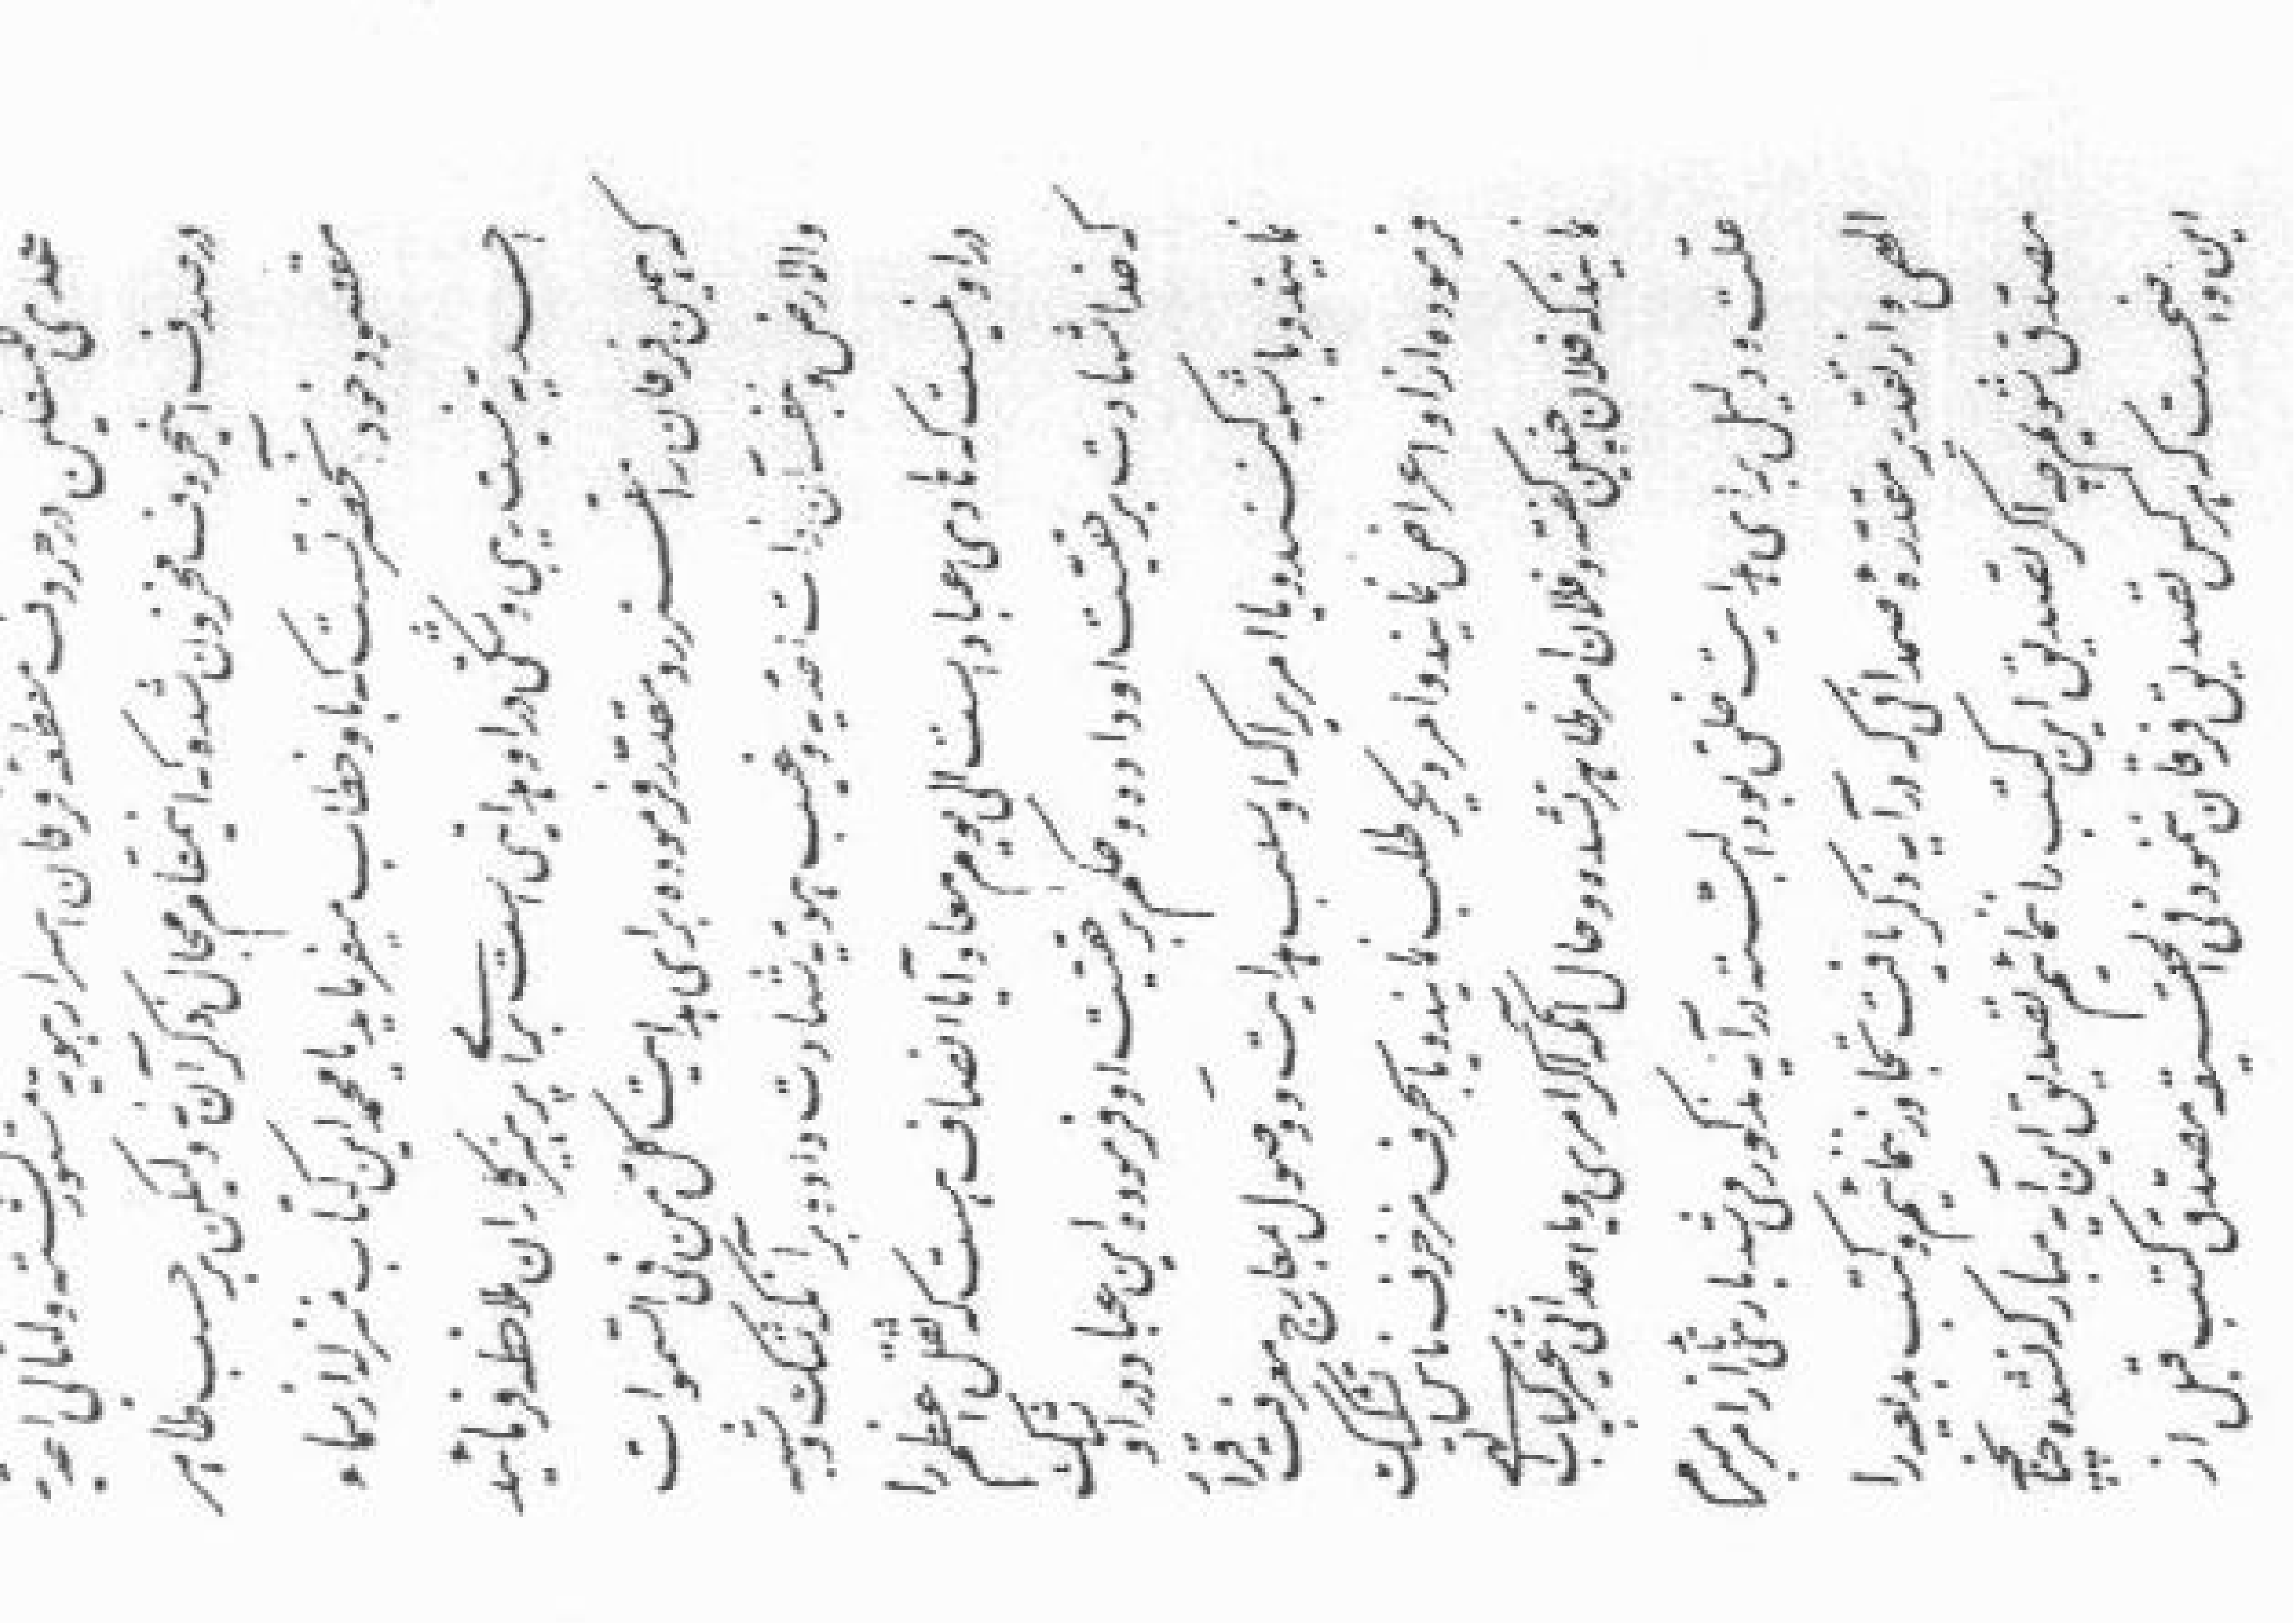 در حروف مقطعه فرقان اسرار هویه مستور گشته و لئالی احدیه
در صدف این حروف مخزون شده که این مقام مجال ذکر آن نه ولکن بر حسب ظاهر
مقصود خود آنحضرتست که باو خطاب میفرماید یا محمد این کتاب منزل از سماء
احدیه نیست ریبی و شکی در او هدایتی است برای پرهیزکاران ملاحظه فرمائید
که همین فرقان را مقرر و مقدر فرموده برای هدایت کل من فی السموات
والارض و بنفسه آن ذات احدیه و غیب هویه شهادت داده بر آنکه شک و شبهه
در او نیست که هادی عباد است الی یوم معاد و آیا انصاف هست که ثقل اعظم را
که خدا شهادت بر حقیت او داده و حکم بر حقیت او فرموده این عباد در او شک
نمایند و یا شبهه کنند و یا امریرا که او سبب هدایت و وصول بمعارج معرفت قرار
فرموده از او اعراض نمایند و امر دیگر طلب نمایند و یا بحرف مزخرف ناس تشکیک
نمایند که فلان چنین گفته و فلان امر ظاهر نشده و حال آنکه اگر امری و یا احداثی غیر کتاب
علت و دلیل برای هدایت خلق بود البته در آیه مذکور میشد باری از امر مبرم
الهی و از تقدیر مقدره صمدانی که در آیه ذکر یافت تجاوز ننمائیم و کتب بدیعه را
مصدق شویم چه اگر تصدیق این کتب را ننمائیم تصدیق این آیه مبارکه نشده چنانچه
این واضحست که هر کس تصدیق فرقان ننمود فی الحقیقه مصدق کتب قبل از